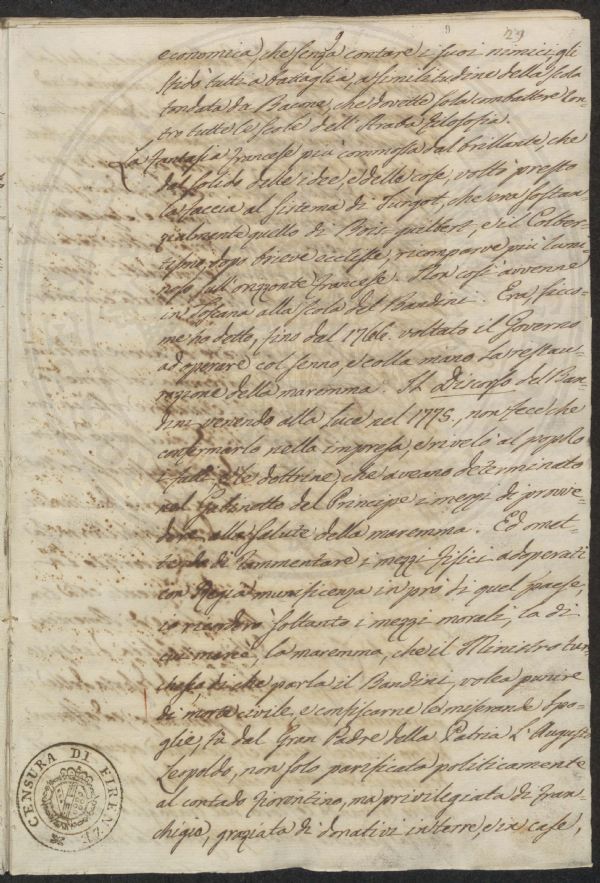 9
9
29
economica, che senza contare i suoi nimici gli
sfidò tutti a battaglia, a similitudine della scola
fondata da Bacone, che dovette sola combattere con-
tro tutte le scole dell'Araba filosofia.
La fantasia francese più commossa dal brillante, che
dal solido delle idee, e delle cose, voltò presto
la faccia al sistema di Turgot, che era sostan-
zialmente quello di Bois-guilbert, e il Colber-
tismo, dopo brieve eclisse, ricomparve più lumi-
noso sull'orizonte francese. Non così avvenne
in Toscana alla scola del Bandini. Era, sicco-
me ho detto, fino dal 1766. voltato il Governo
ad operare col senno, e colla mano la restau-
razione della maremma. Il Discorso del Ban-
dini venendo alla luce nel 1775, non fece che
confermarlo nella impresa, e rivelò al popolo
i fatti, e le dottrine, che aveano determinato
nel Gabinetto del Principe i mezzi di provve-
dere alla salute della maremma. Ed omet-
tendo di rammentare i mezzi fisici adoperati
con Regia munificenza in prò di quel paese,
io ricorderò soltanto i mezzi morali, la di
cui mercè, la maremma, che il Ministro tur-
chesco di che parla il Bandini, volea punire
di morte civile, e confiscarne le miserande spo-
glie, fù dal Gran Padre della Patria L'Augusto
Leopoldo, non solo parificata politicamente
al contado fiorentino, ma privilegiata di fran-
chigia, graziata di donativi in terre, e in case,
CENSURA DI FIRENZE